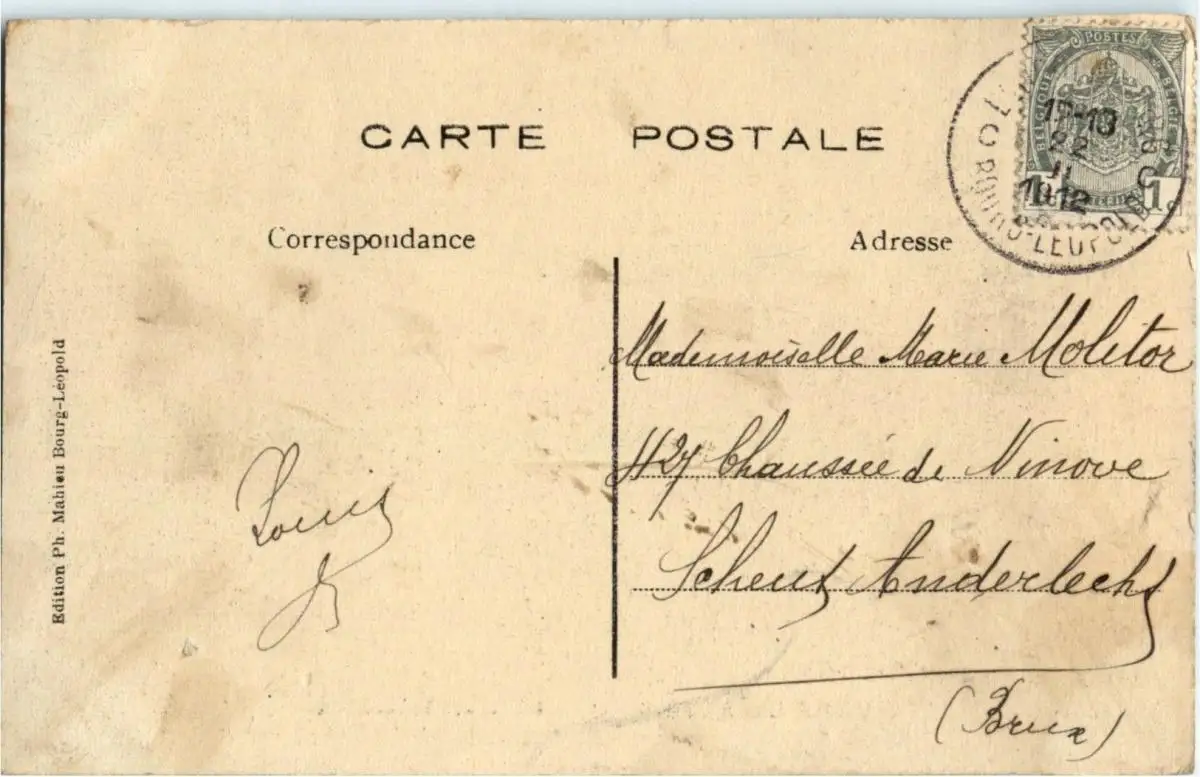 CARTE POSTALE
POSTES
BELGIQUE BELGIE
12-13
22
11
1912
1 1c
BOURG-LEOPOLD
Correspondance
Adresse
Mademoiselle Marie Molitor
427 Chaussée de Ninove
Scheut Anderlecht
(Brux)
Louis
Edition Ph. Mahieu Bourg-Léopold